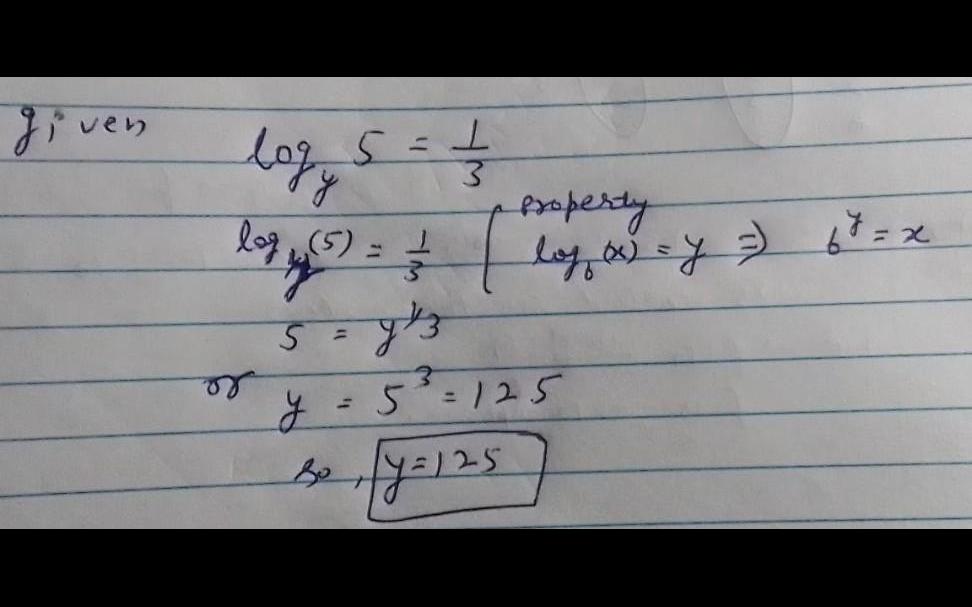 given
log_y 5 = 1/3
log_y (5) = 1/3 | property
log_b (x) = y ⇒ b^y = x
5 = y^1/3
or y = 5^3 = 125
so, y = 125